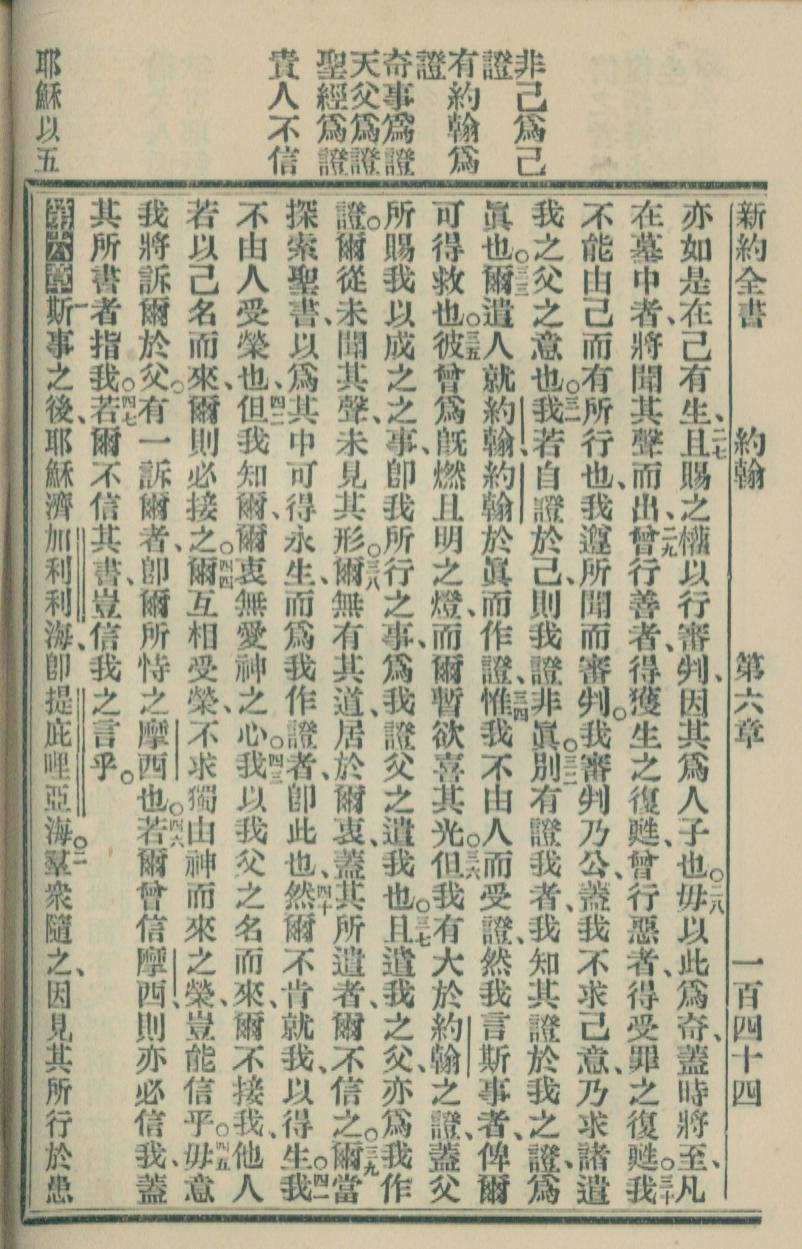 非己爲己
證
有約翰爲
證
奇事爲證
天父爲證
聖經爲證
責人不信
耶穌以五
新約全書 約翰 第六章 一百四十四
亦如是在己有生、二七且賜之權以行審判、因其爲人子也。二八毋以此爲奇、蓋時將至、凡
在墓中者、將聞其聲而出、二九曾行善者、得獲生之復甦、曾行惡者、得受罪之復甦。三十我
不能由己而有所行也、我遵所聞而審判。我審判乃公、蓋我不求己意、乃求諸遣
我之父之意也。三一我若自證於己、則我證非眞。三二別有證我者、我知其證於我之證、爲
眞也。三三爾遣人就約翰、約翰於眞而作證、三四惟我不由人而受證、然我言斯事者、俾爾
可得救也。三五彼曾爲旣燃且明之燈、而爾暫欲喜其光。三六但我有大於約翰之證、蓋父
所賜我以成之之事、卽我所行之事、爲我證父之遣我也。三七且遣我之父、亦爲我作
證。爾從未聞其聲、未見其形。三八爾無有其道、居於爾衷、蓋其所遣者、爾不信之。三九爾當
探索聖書、以爲其中可得永生、而爲我作證者、卽此也、四十然爾不肯就我、以得生。四一我
不由人受榮也、四二但我知爾、爾衷無愛神之心。四三我以我父之名而來、爾不接我、他人
若以己名而來、爾則必接之。四四爾互相受榮、不求獨由神而來之榮、豈能信乎。四五毋意
我將訴爾於父。有一訴爾者、卽爾所恃之摩西也。四六若爾曾信摩西、則亦必信我、蓋
其所書者指我。四七若爾不信其書、豈信我之言乎。
第六章一斯事之後、耶穌濟加利利海、卽提庇哩亞海。二羣衆隨之、因見其所行於患